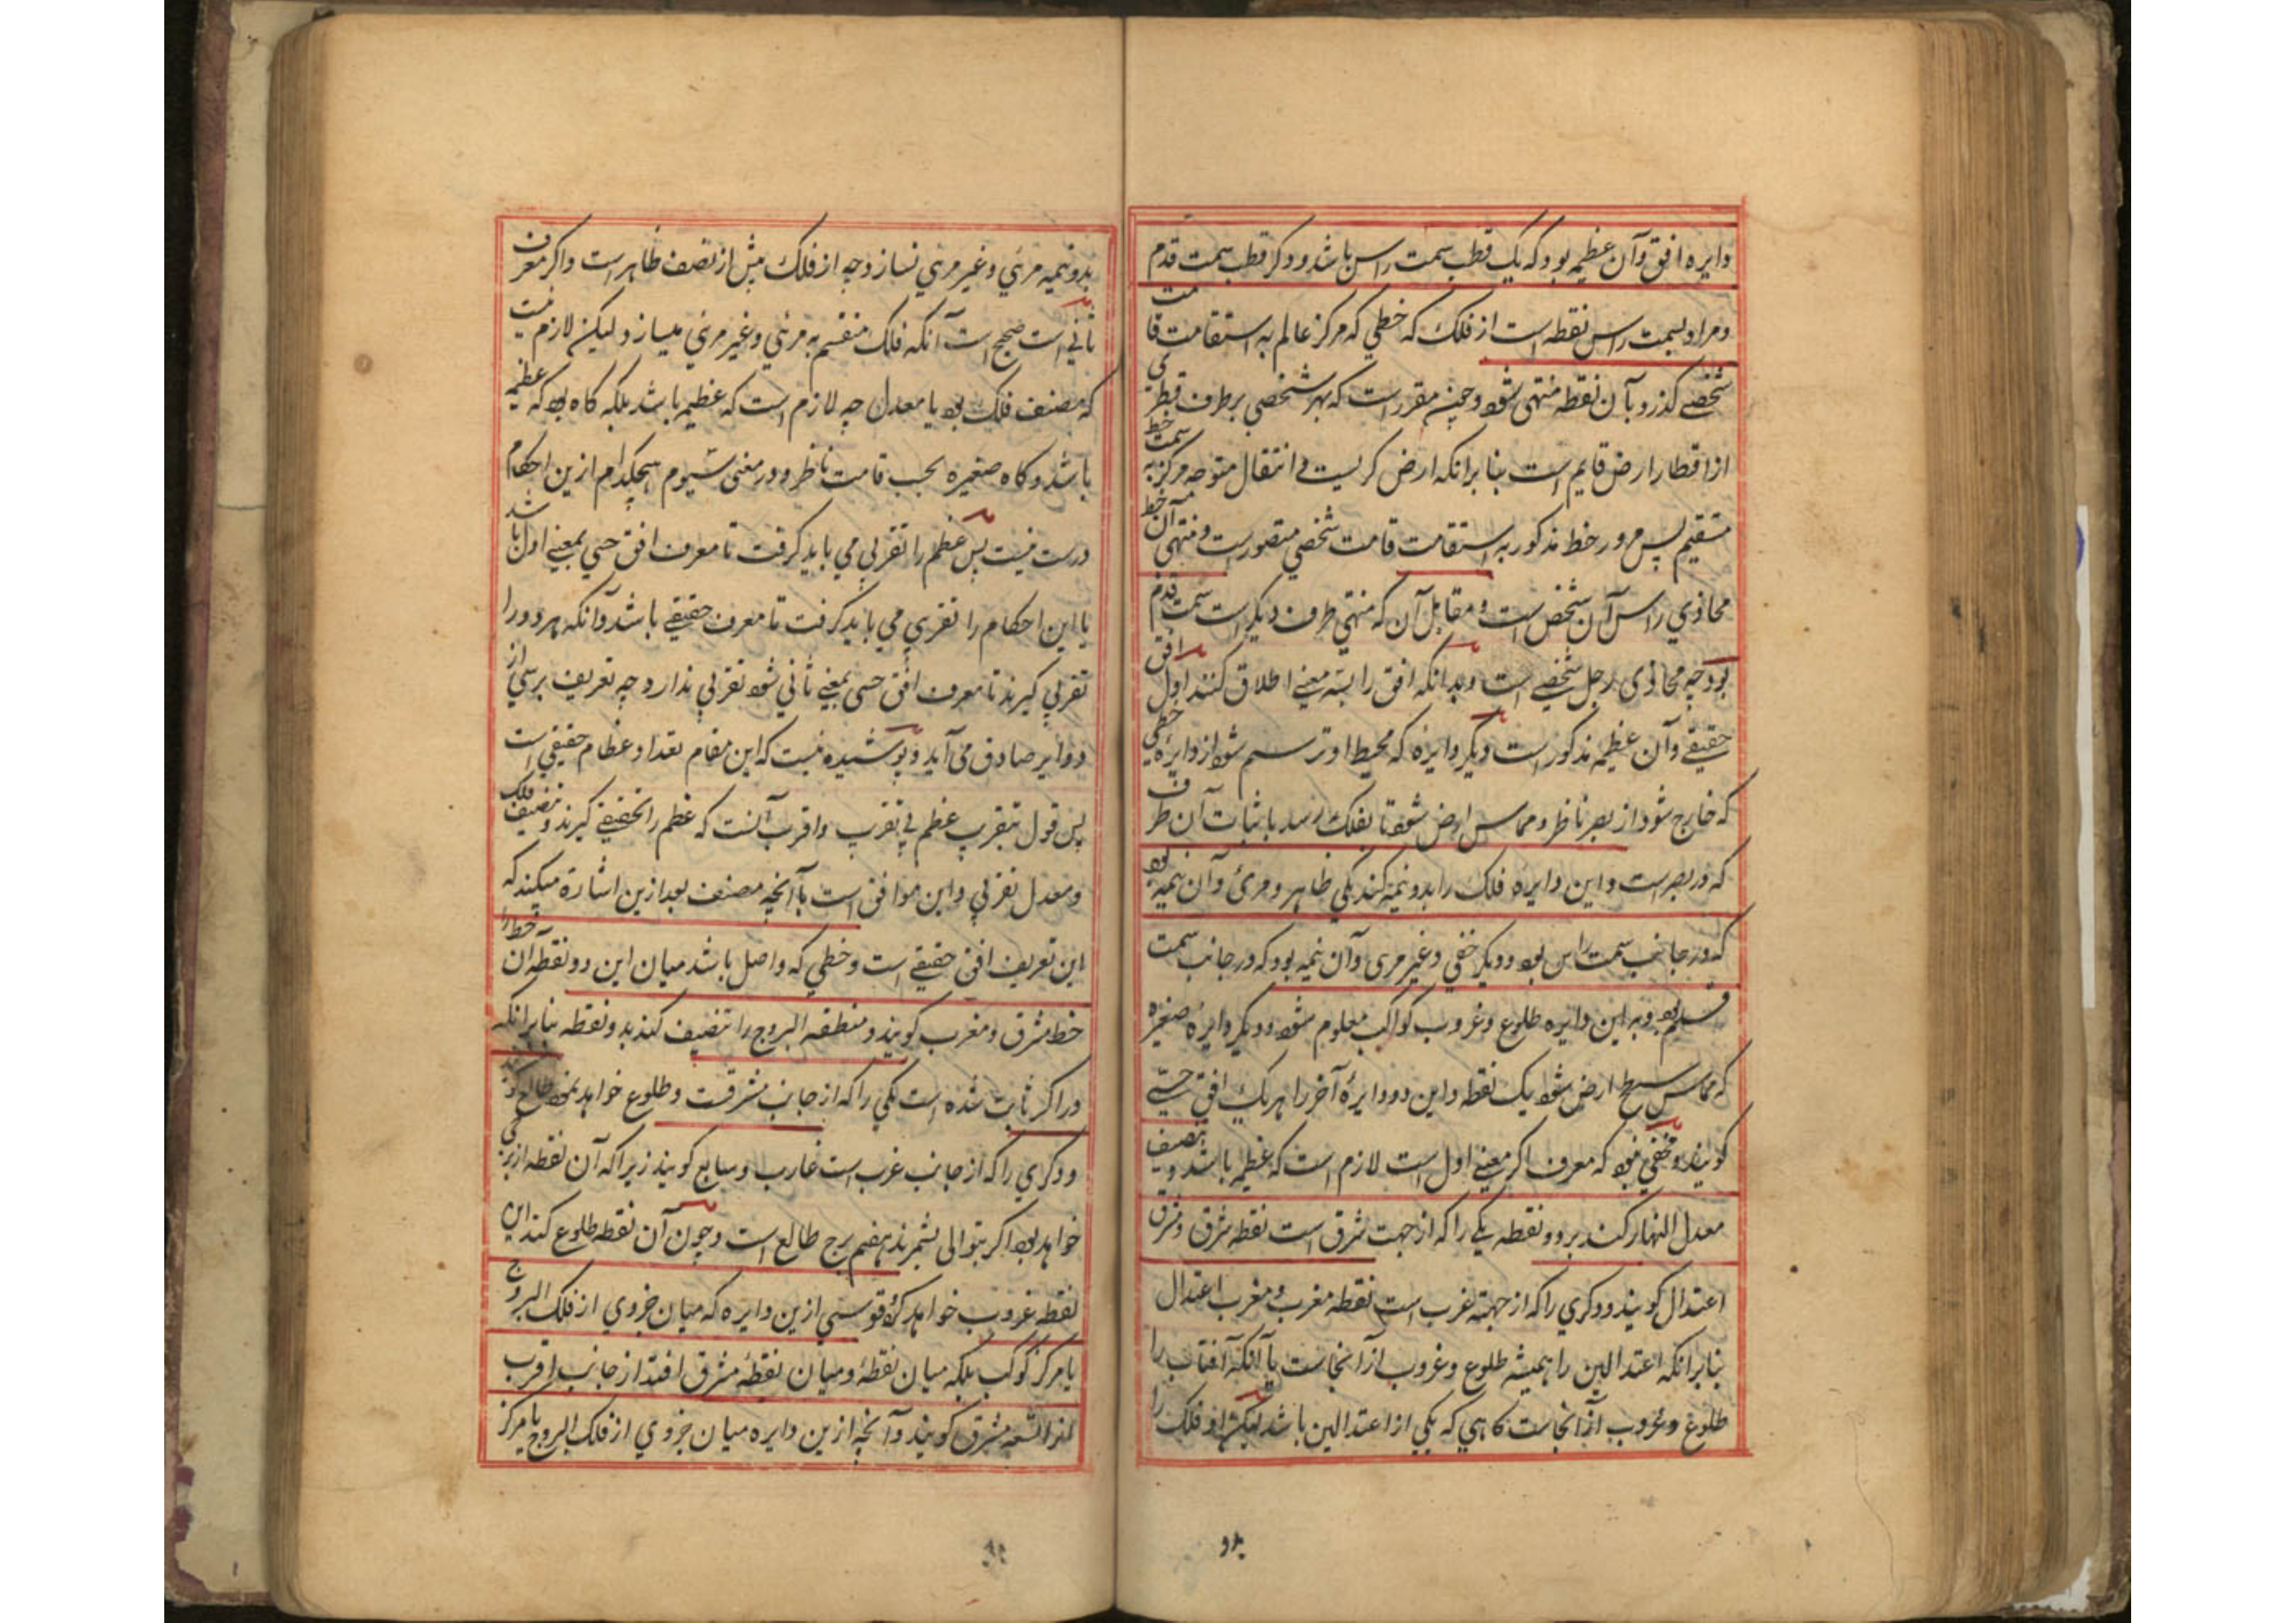 دایره افق وآن عظیمه بود که یک قطب سمت راس باشد ودکر قطب سمت قدم
ومراد بسمت راس نقطه است از فلک که خطی که مرکز عالم به استقامت قامت
شخصی کذرد بآن نقطه منتهی شود وچنین مقرر است که هر شخصی بر طرف قطری
از اقطار ارض قایم است بنا برانکه ارض کریست فی انتقال متوجه مرکز به سمت خط
مستقیم پس مرور خط مذکور به استقامت قامت شخصی متصور است ومنتهی آن خط
محاذی راس آن شخص است ومقابل آن که منتهی طرف دیکر است سمت قدم
بود چه محاذی رجل شخص است وبدانکه افق را بسه معنی اطلاق کنند اول افق
حقیقی وآن عظیمه مذکور است ودیکر دایره که محیط او ترسم شود از دایره خطی
که خارج شود از بصر ناظر ومماس ارض شود تا بفلک رسد با ثبات آن طرف
که در بصر است واین دایره فلک را بدو نیمه کند یکی ظاهر ومرئی وآن نیمه بود
که در جانب سمت راس بود ودیکر خفی وغیر مرئی وآن نیمه بود که در جانب سمت
قدم بود وبه این دایره طلوع وغروب کواکب معلوم شود ودیکر دایره صغیره
که مماس سطح ارض شود بیک نقطه واین دو دایره آخر را هر یک افق حسی
کویند ومخفی نبود که معرف اکر معنی اول است لازم است که عظیمه باشد وتنصیف
معدل النهار کند بر دو نقطه یکی را که از جهت شرق است نقطه شرق ومشرق
اعتدال کویند ودکری را که از جهته غرب است نقطه مغرب ومغرب اعتدال
بنا برانکه اعتدالین را همیشه طلوع وغروب از آنجاست یا آنکه آفتاب را
طلوع وغروب از آنجاست کاهی که یکی از اعتدالین باشد لیکن او فلک را
بدو نیمه مرئی وغیر مرئی نسازد چه از فلک بیش از نصف ظاهر است واکر معرف
ثانی است صحیح است آنکه فلک منقسم به مرئی وغیر مرئی میسازد ولیکن لازم نیست
که منصف فلک بود یا معدل چه لازم است که عظیمه باشد بلکه کاه بود که عظیمه
باشد وکاه صغیره بحسب قامت ناظر ودر معنی سیوم هیچکدام ازین احکام
درست نیست پس عظم را تقریبی می باید کرفت تا معرف افق حسی بمعنی اول باشد
یا این احکام را تقریبی می باید کرفت تا معرف حقیقی باشد وآنکه هر دو را
تقریبی کیرند تا معرف افق حسی بمعنی ثانی شود تقریبی ندارد چه تعریف بر سی از
دوایر صادق می آید وپوشیده نیست که این مقام تعداد عظام حقیقی است
پس قول بتقریب عظم بی تقرب واقرب آنست که عظم را تحقیقی کیرند وتنصیف فلک
ومعدل تقریبی واین موافق است بآنچه مصنف بعد ازین اشارة میکند که
این تعریف افق حقیقی است وخطی که واصل باشد میان این دو نقطه آن خط را
خط مشرق ومغرب کویند ومنطقه البروج را تنصیف کند بدو نقطه بنا برانکه
در اکر ثابت شده است یکی را که از جانب شرقست وطلوع خواهد نمود طالع کویند
ودکری را که از جانب غرب است غارب وسابع کویند زیرا که آن نقطه از برجی
خواهد بود اکر بتوالی بشمرند هفتم برج طالع است وچون آن نقطه طلوع کند این
نقطه غروب خواهد کرد وقوسی ازین دایره که میان جزوی از فلک البروج
یا مرکز کوکب بلکه میان نقطهٔ ومیان نقطهٔ مشرق افتد از جانب اقرب
انرا سعه مشرق کویند وآنچه ازین دایره میان جزوی از فلک البروج یا مرکز
بدو